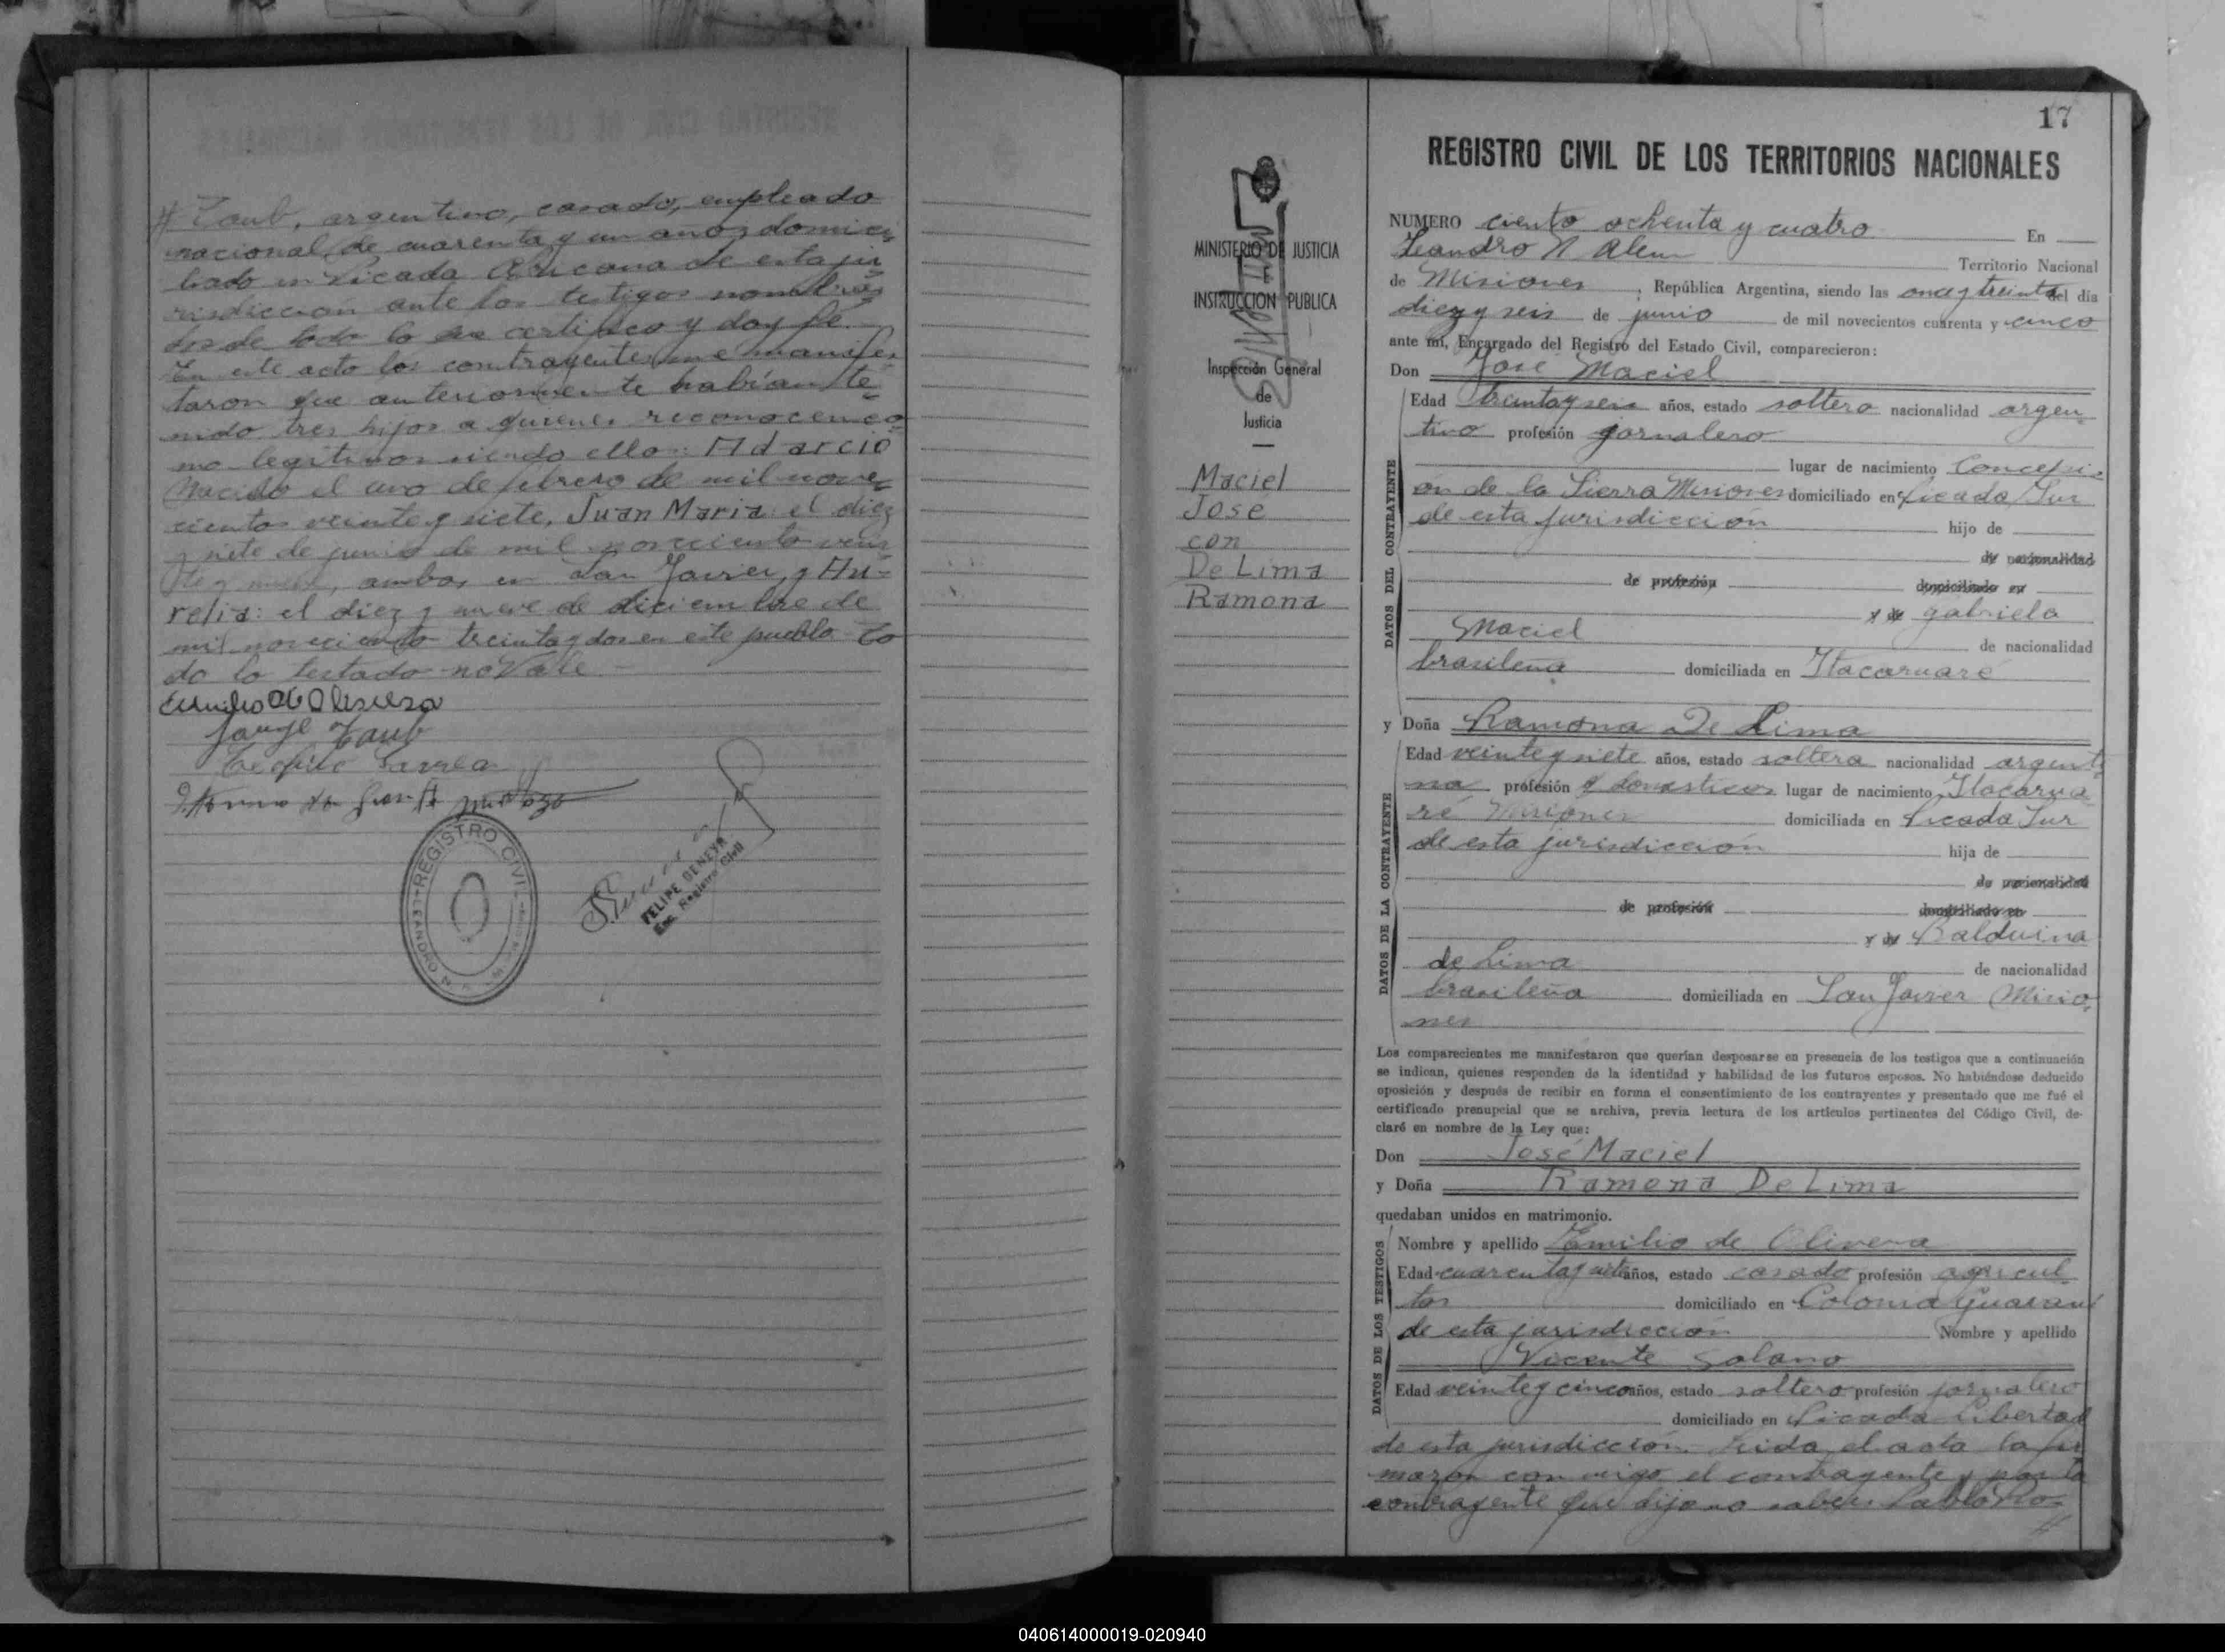 # Taub, argentino, casado, empleado
nacional, de cuarenta y un años domici
liado en Picada Africana de esta ju
risdicción ante los testigos nombra
dos de todo lo que certifico y doy fe.
En este acto los contrayentes me manifes
taron que anteriormente habían te
nido tres hijos a quienes reconocen co
mo legítimos siendo ellos: Adarcio
Nacido el uno de febrero de mil nove
cientos veinte y siete, Juan Maria: el diez
y siete de junio de mil novecientos vein
te y nueve, ambos en San Javier, y Au-
relia: el diez y nueve de diciembre de
mil novecientos treinta y dos en este pueblo. To
do lo testado no Vale
Emilio de Olivera
Jorge Taub
REGISTRO CIVIL
LEANDRO N.
FELIPE
Enc. Registro Civil
MINISTERIO DE JUSTICIA
INSTRUCCION PUBLICA
Inspección General
de
Justicia
Maciel
José
con
De Lima
Ramona
17
REGISTRO CIVIL DE LOS TERRITORIOS NACIONALES
NUMERO ciento ochenta y cuatro En
Leandro N Alem Territorio Nacional
de Misiones, República Argentina, siendo las once y treinta del día
diez y seis de junio de mil novecientos cuarenta y cinco
ante mí, Encargado del Registro del Estado Civil, comparecieron:
Don José Maciel
DATOS DEL CONTRAYENTE
Edad treinta y seis años, estado soltero nacionalidad argen
tino profesión jornalero
lugar de nacimiento Concepci
ón de la Sierra Misiones domiciliado en Picada Sur
de esta jurisdicción hijo de
de nacionalidad
de profesión domiciliado en
y de gabriela
Maciel de nacionalidad
brasileña domiciliada en Itacaruaré
y Doña Ramona De Lima
DATOS DE LA CONTRAYENTE
Edad veinte y siete años, estado soltera nacionalidad argenti
na profesión q domesticos lugar de nacimiento Itacarua
ré Misiones domiciliada en Picada Sur
de esta jurisdicción hija de
de nacionalidad
de profesión domiciliado en
y de Balduina
de Lima de nacionalidad
brasileña domiciliada en San Javier Misio
nes
Los comparecientes me manifestaron que querían desposarse en presencia de los testigos que a continuación
se indican, quienes responden de la identidad y habilidad de los futuros esposos. No habiéndose deducido
oposición y después de recibir en forma el consentimiento de los contrayentes y presentado que me fué el
certificado prenupcial que se archiva, previa lectura de los artículos pertinentes del Código Civil, de-
claré en nombre de la Ley que:
Don José Maciel
y Doña Ramona De Lima
quedaban unidos en matrimonio.
DATOS DE LOS TESTIGOS
Nombre y apellido Emilio de Olivera
Edad cuarenta y años, estado casado profesión agricul
tor domiciliado en Colonia Guaraní
de esta jurisdicción Nombre y apellido
Vicente Solano
Edad veinte y cinco años, estado soltero profesión jornalero
domiciliado en Picada Libertad
de esta jurisdicción. Leida el acta la fir
maron con migo el contrayente y por la
contrayente que dijo no saber: Pablo Ro-
#
040614000019-020940